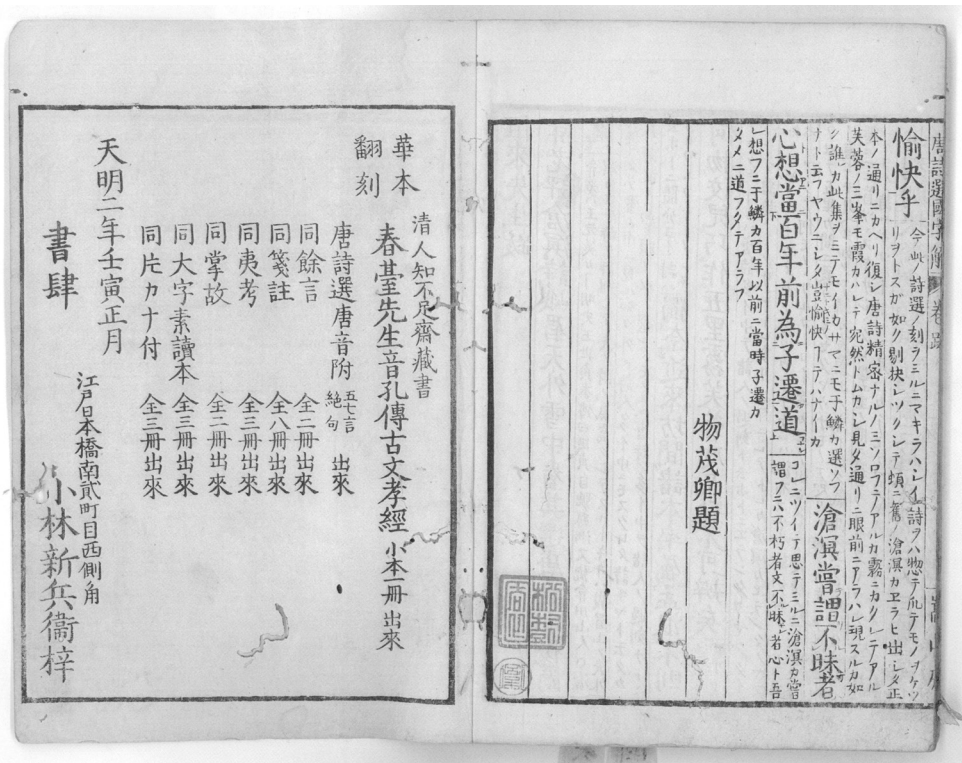 唐詩選國字解 卷跋
愉快乎
今此ノ詩選ノ刻ヲミルニマキラハシイ詩ヲハ惣テ爪テモノヲケツ
リヲトスガ如ク剔抉シツクシテ頓ニ舊ノ滄溟カエラヒ出シタ正
本ノ通リニカヘリ復シ唐詩精密ナルノミソロフテアルカ霧ニカクレテアル
芙蓉ノ三峯モ霞カハレテ宛然トムカシ見タ通リニ眼前ニアラハレ現スルカ如
ク誰カ此集ヲミテモイカサマニモ于鱗カ選ソフ
ナト云フヤウニシタ豈愉快フテハナイカ
滄溟嘗謂不昧者
心想當百年前為子遷道
コレニツイテ思テミルニ滄溟カ嘗
謂フニハ不朽者文不昧者心ト吾
レ想フニ于鱗カ百年以前ニ當時子遷カ
タメニ道フタテアラフ
物茂卿題
華本
翻刻
清人知不足齋藏書
春臺先生音孔傳古文孝經 小本一冊出來
唐詩選唐音附 五七言絶句 出來
同餘言 全二冊出來
同箋註 全八冊出來
同夷考 全三冊出來
同掌故 全二冊出來
同大字素讀本 全三冊出來
同片カナ付 全三冊出來
天明二年壬寅正月
江戸日本橋南貳町目西側角
書肆 小林新兵衞梓